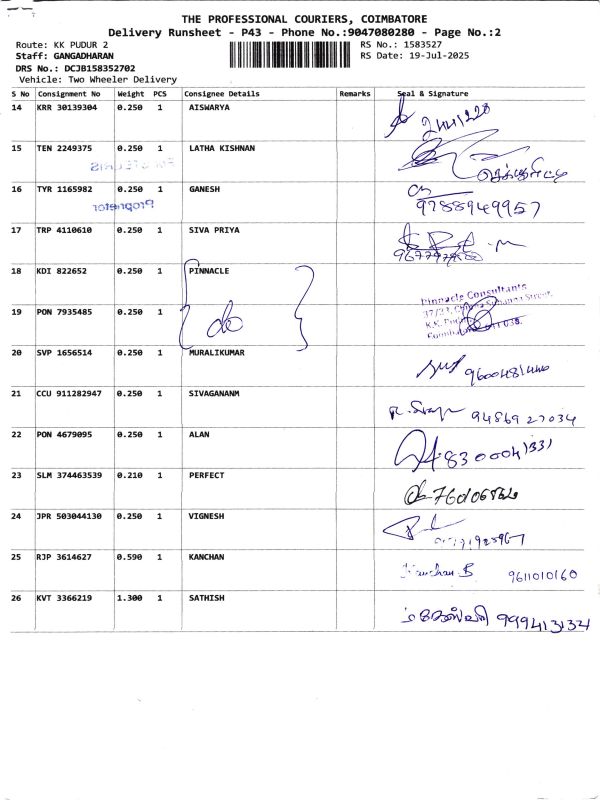 THE PROFESSIONAL COURIERS, COIMBATORE
Delivery Runsheet - P43 - Phone No.:9047080280 - Page No.:2
Route: KK PUDUR 2 RS No.: 1583527
Staff: GANGADHARAN RS Date: 19-Jul-2025
DRS No.: DCJB158352702
Vehicle: Two Wheeler Delivery
S No Consignment No Weight PCS Consignee Details Remarks Seal & Signature
14 KRR 30139304 0.250 1 AISWARYA
15 TEN 2249375 0.250 1 LATHA KISHNAN
16 TYR 1165982 0.250 1 GANESH
Proprietor 9788949957
17 TRP 4110610 0.250 1 SIVA PRIYA
18 KDI 822652 0.250 1 PINNACLE
Pinnacle Consultants
19 PON 7935485 0.250 1 do
20 SVP 1656514 0.250 1 MURALIKUMAR
21 CCU 911282947 0.250 1 SIVAGANANM
94869 27034
22 PON 4679095 0.250 1 ALAN
8300041331
23 SLM 374463539 0.210 1 PERFECT
24 JPR 503044130 0.250 1 VIGNESH
25 RJP 3614627 0.590 1 KANCHAN
Kanchan B 9611010160
26 KVT 3366219 1.300 1 SATHISH